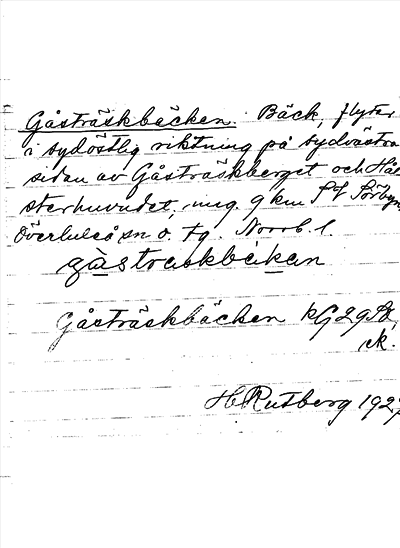 Gåsträskbäcken. Bäck, flyter
i sydöstlig riktning på sydvästra
sidan av Gåsträskberget och Häl
sterhuvudet, ung. 9 km SV Sörbyn,
Överluleå sn o. tg. Norrb. l.
gàstraskbäkan
Gåsträskbäcken kG29
ek.
H Rutberg 1927